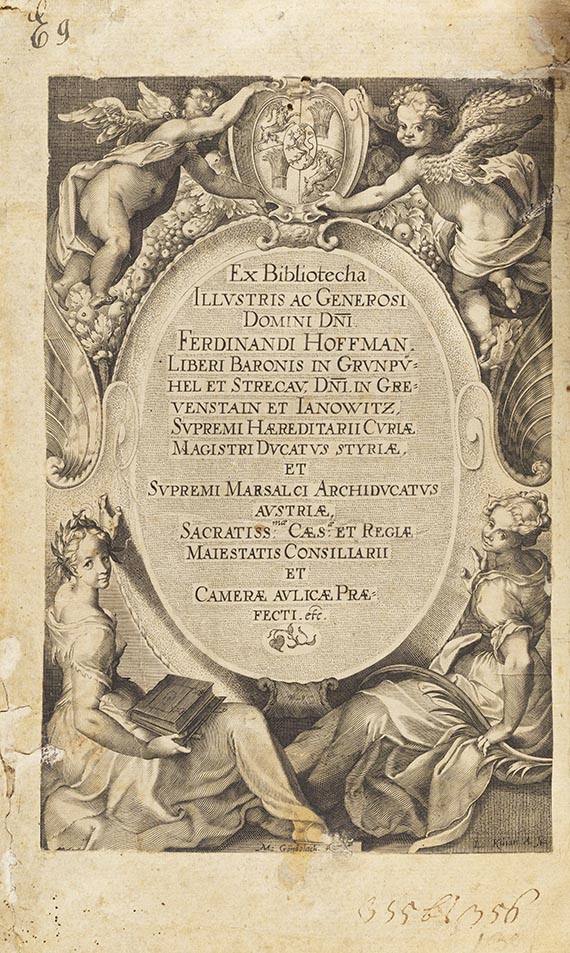 E 9
Ex Bibliotecha
ILLVSTRIS AC GENEROSI
DOMINI DÑI.
FERDINANDI HOFFMAN.
LIBERI BARONIS IN GRVNPV̈=
HEL ET STRECAV, DÑI. IN GRE-
VENSTAIN ET IANOWITZ,
SVPREMI HÆREDITARII CVRIÆ
MAGISTRI DVCATVS STYRIÆ,
ET
SVPREMI MARSALCI ARCHIDVCATVS
AVSTRIÆ,
SACRATISS.mæ CÆS.æ ET REGIÆ
MAIESTATIS CONSILIARII
ET
CAMERÆ AVLICÆ PRÆ=
FECTI. etc.
M. Gondolach.
L. Kilian A.